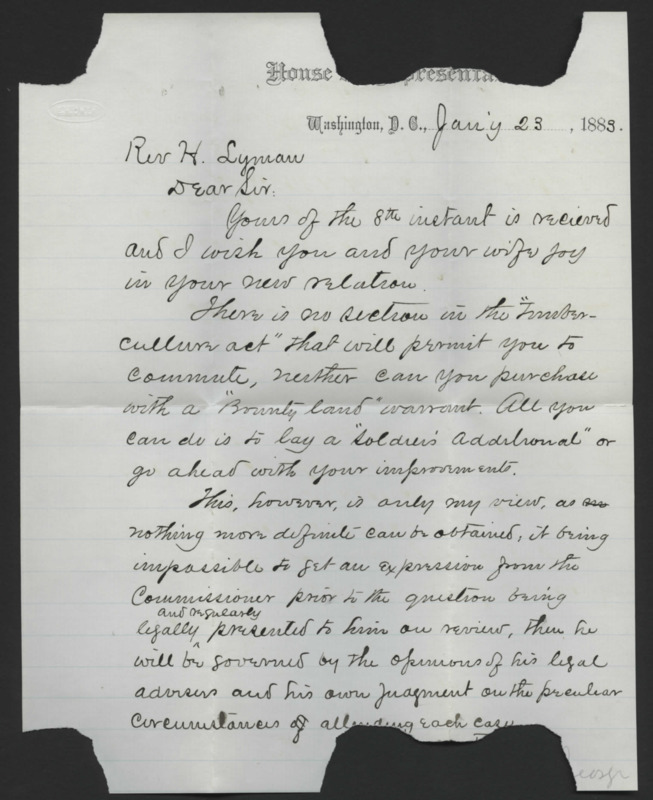 House
Washington, D. C., Jan'y 23, 1883.
Rev H. Lyman
Dear Sir:
Yours of the 8th instant is recieved
and I wish you and your wife joy
in your new relation.
There is no section in the "Timber-
culture act" that will permit you to
commute, neither can you purchase
with a "Bounty land" warrant. All you
can do is to lay a "Soldiers Additional" or
go ahead with your improvements.
This, however, is only my view, as
nothing more definite can be obtained, it being
impossible to get an expression from the
Commissioner prior to the question being
and regularly
legally presented to him on review, then he
will be governed by the opinions of his legal
advisers and his own judgment on the peculiar
circumstances attending each case